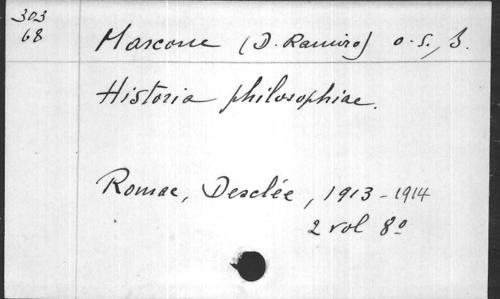 303
68
Marcone (D. Ramiro) o. S., B.
Historia philosophiae.
Romae, Desclée, 1913-1914
2 vol 8º